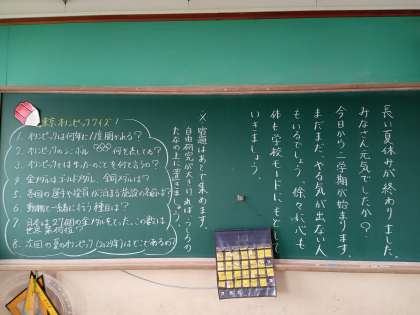 長い夏休みが終わりました。
みなさん元気でしたか？
今日から二学期が始まります。
まだまだ、やる気が出ない人
もいるでしょう。徐々に心も
体も学校モードに、もどして
いきましょう。
※宿題はあとで集めます。
自由研究が大きければ、うしろの
たなの上に置きましょう。
東京オリンピッククイズ！
1. オリンピックは何年に1度開かれる？
2. オリンピックのシンボル 何を表してる？
3. オリンピックとは
4. 金メダルはゴールドメダル、銅メダルは？
5. 各国の選手や役員が泊まる施設の名前は？
6. 動物と一緒に行う種目は？
7. 日本は27個の金メダルをとった。この数は
世界第何位？
8. 次回の夏のオリンピック（2024年）はどこであるの？